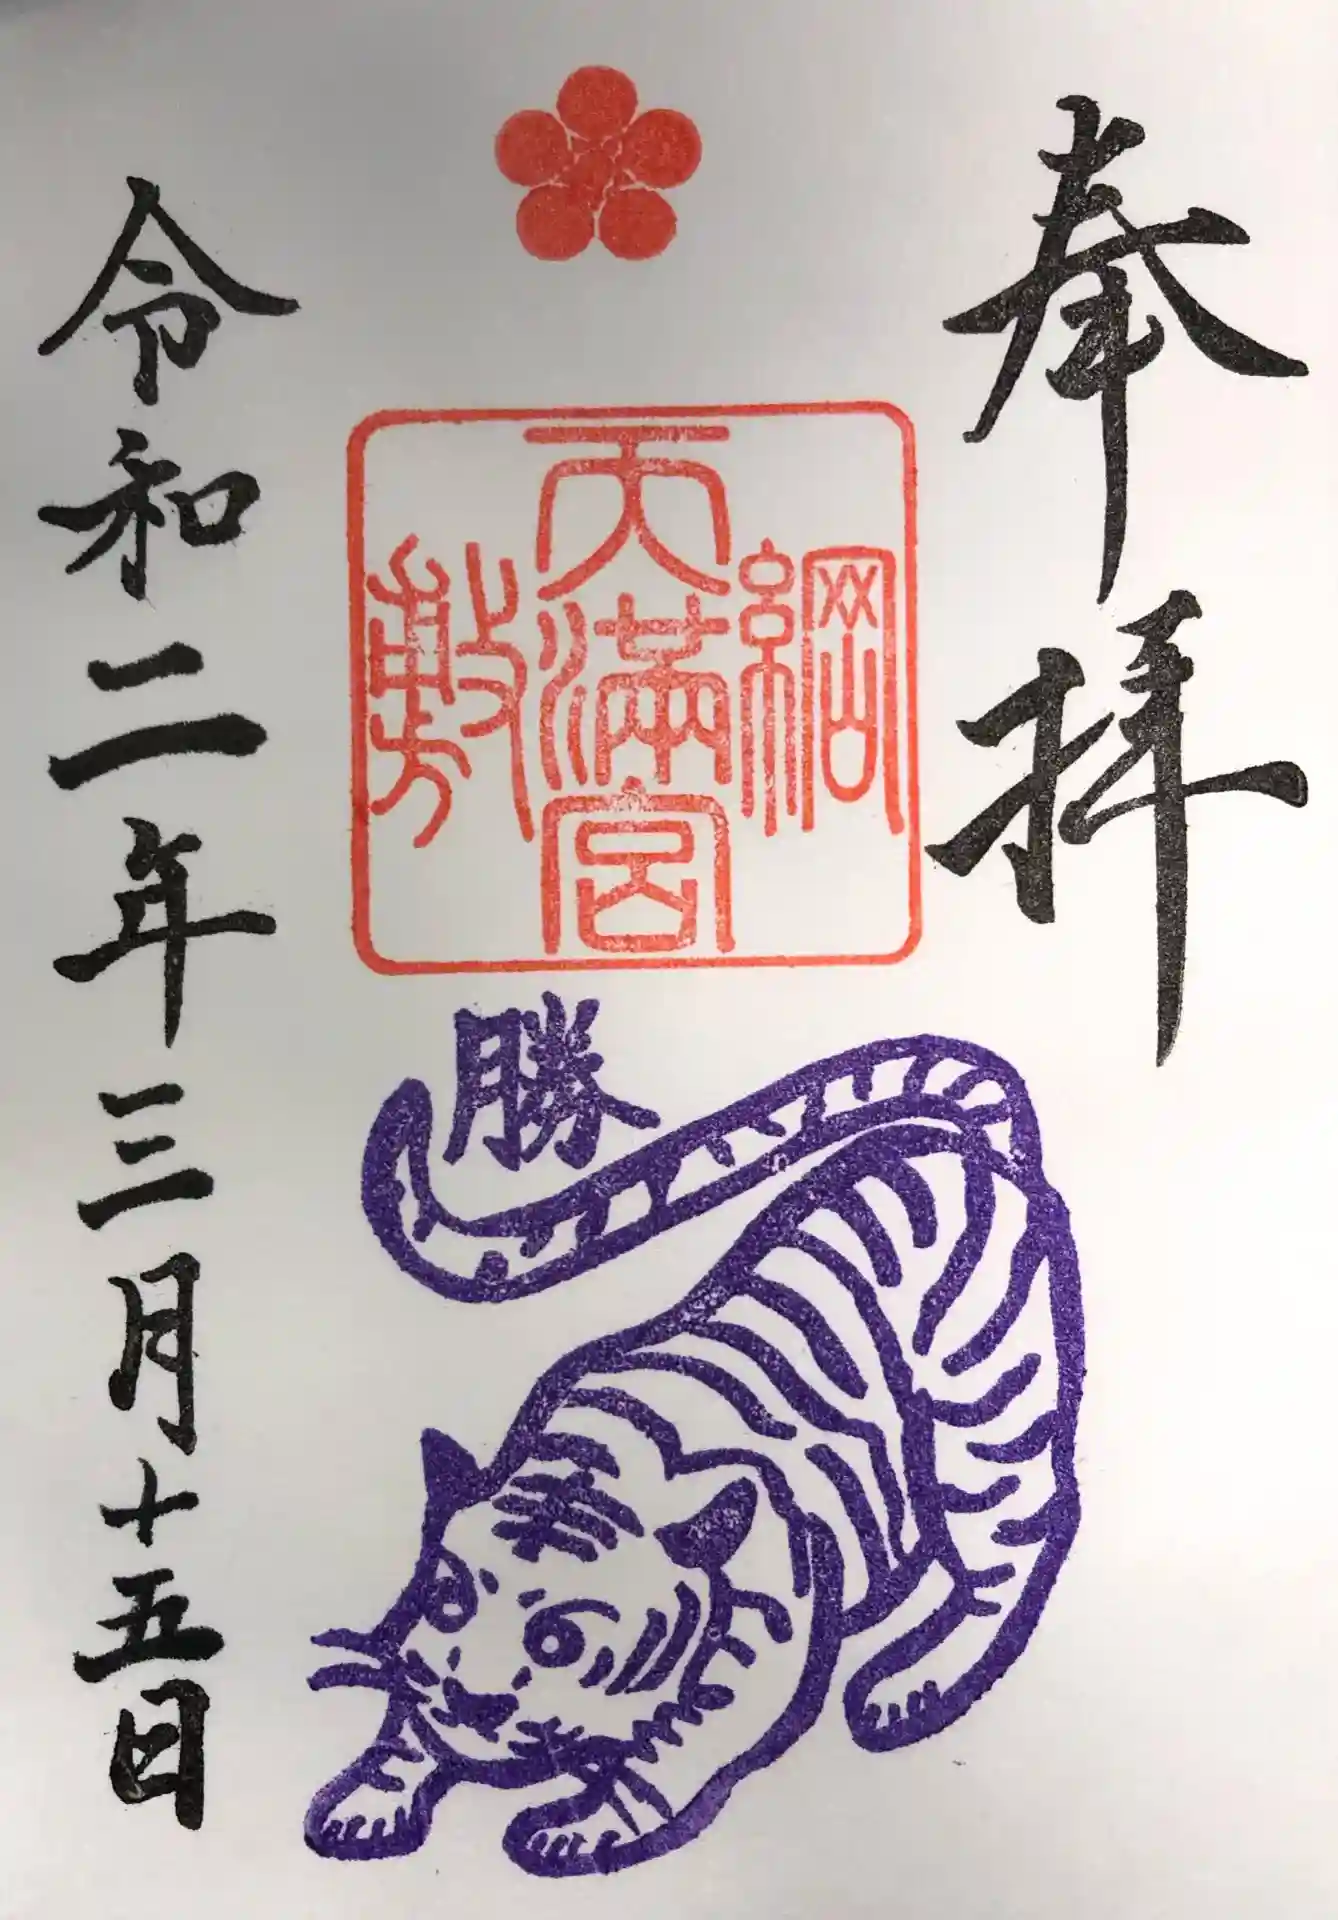 奉拝
綱
天満宮
敷
勝
令和二年三月十五日